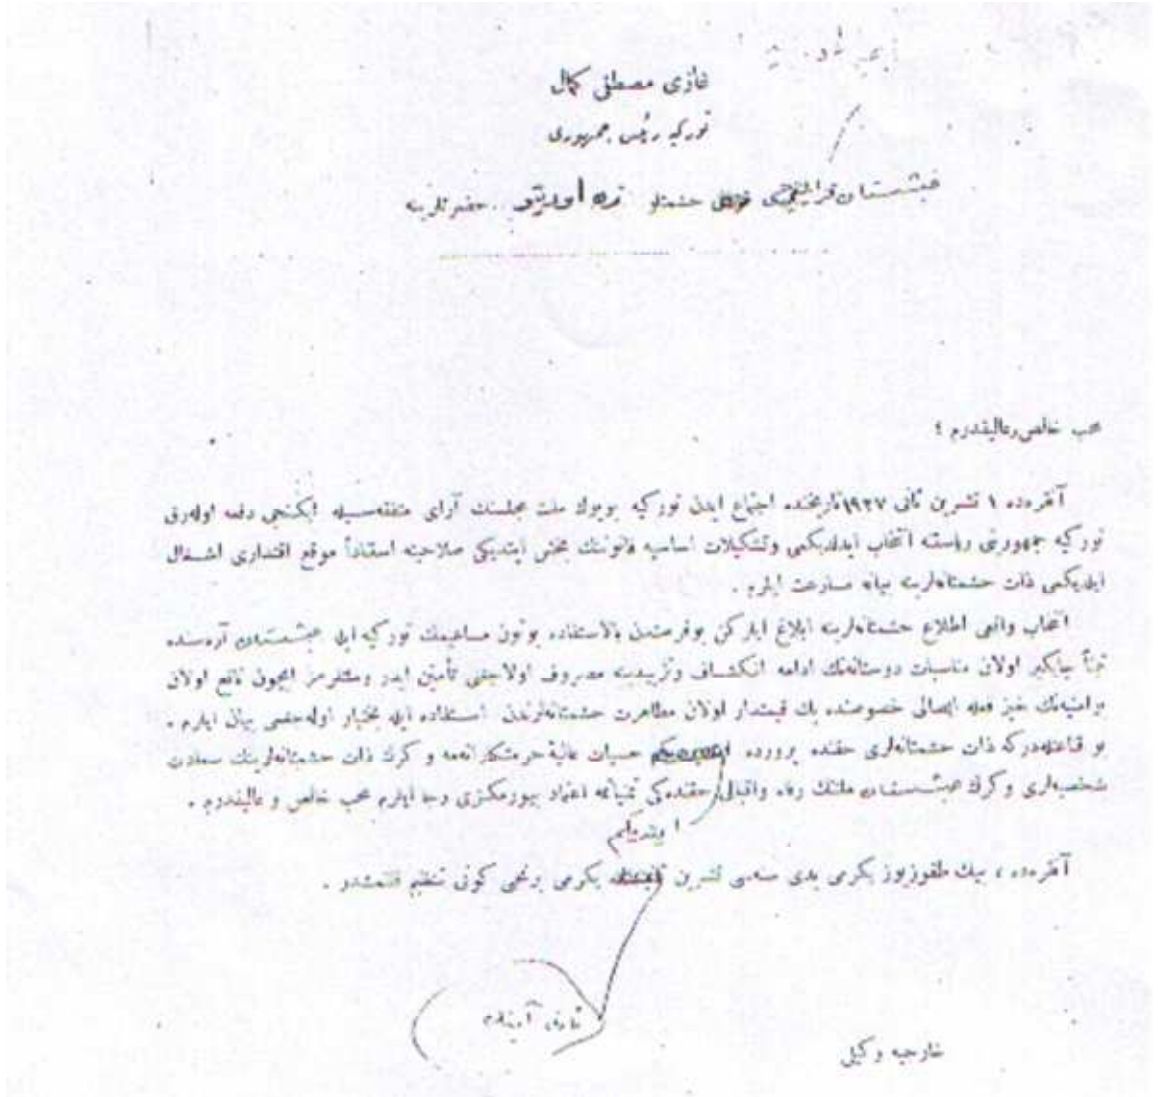 غازی مصطفی کمال
تورکیه رئیس جمهوری
حبشستان قرالیچه‌سی حشمتلو زه اودیتو حضرتلرینه
محب خالص و عالیقدرم ؛
آنقره‌ده ۱ تشرین ثانی ۱۹۲۷ تاریخنده اجتماع ایدن تورکیه بویوك ملت مجلسنك آرای متفقه‌سیله ایکنجی دفعه اوله‌رق
تورکیه جمهوریتی ریاستنه انتخاب ایدلدیکمی و تشکیلات اساسیه قانوننك بخش ایتدیکی صلاحیته استناداً موقع اقتداری اشغال
ایلدیکمی ذات حشمتانه‌لرینه بیانه مسارعت ایلرم .
انتخاب واقعی اطلاع حشمتانه‌لرینه ابلاغ ایلرکن بو فرصتدن بالاستفاده بوتون مساعیمك تورکیه ایله حبشستان آره‌سنده
اولان مناسبات دوستانه‌نك ادامه انکشاف و تزییدینه مصروف اولاجغنی تأمین ایدر و ملتلرمز ایچون نافع اولان
بو امنیه‌نك حیز فعله ایصالی خصوصنده پك قیمتدار اولان مظاهرت حشمتانه‌لرندن استفاده ایله بختیار اوله‌جغمی بیان ایلرم .
بو قناعتله‌درکه ذات حشمتانه‌لری حقنده پرورده حسیات عالیهٔ حرمتکارانه‌مه و کرك ذات حشمتانه‌لرینك سعادت
شخصیه‌لری و کرك حبشستان ملتنك رفاه و اقبالی حقنده‌کی تمنیاتمه اعتماد بیورمکزی رجا ایلرم محب خالص و عالیقدرم .
ایتدیکم
آنقره‌ده ، بیك طقوزیوز یکرمی یدی سنه‌سی تشرین یکرمی برنجی کونی تنظیم قلنمشدر .
خارجیه وکیلی